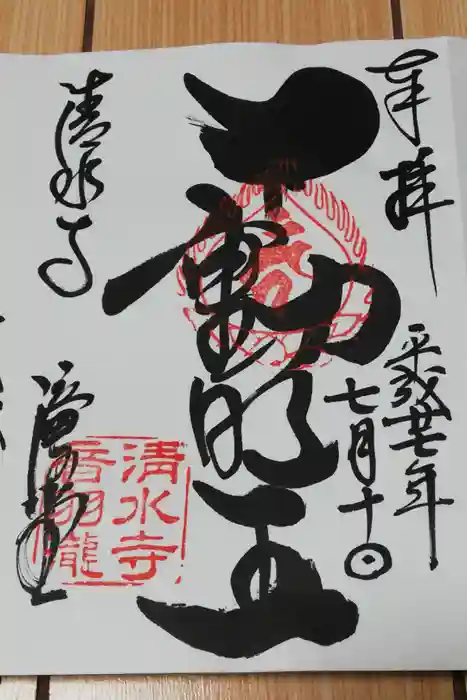 奉拝
平成廿七年
七月十日
不動明王
清水寺
滝の堂
清水寺
音羽瀧